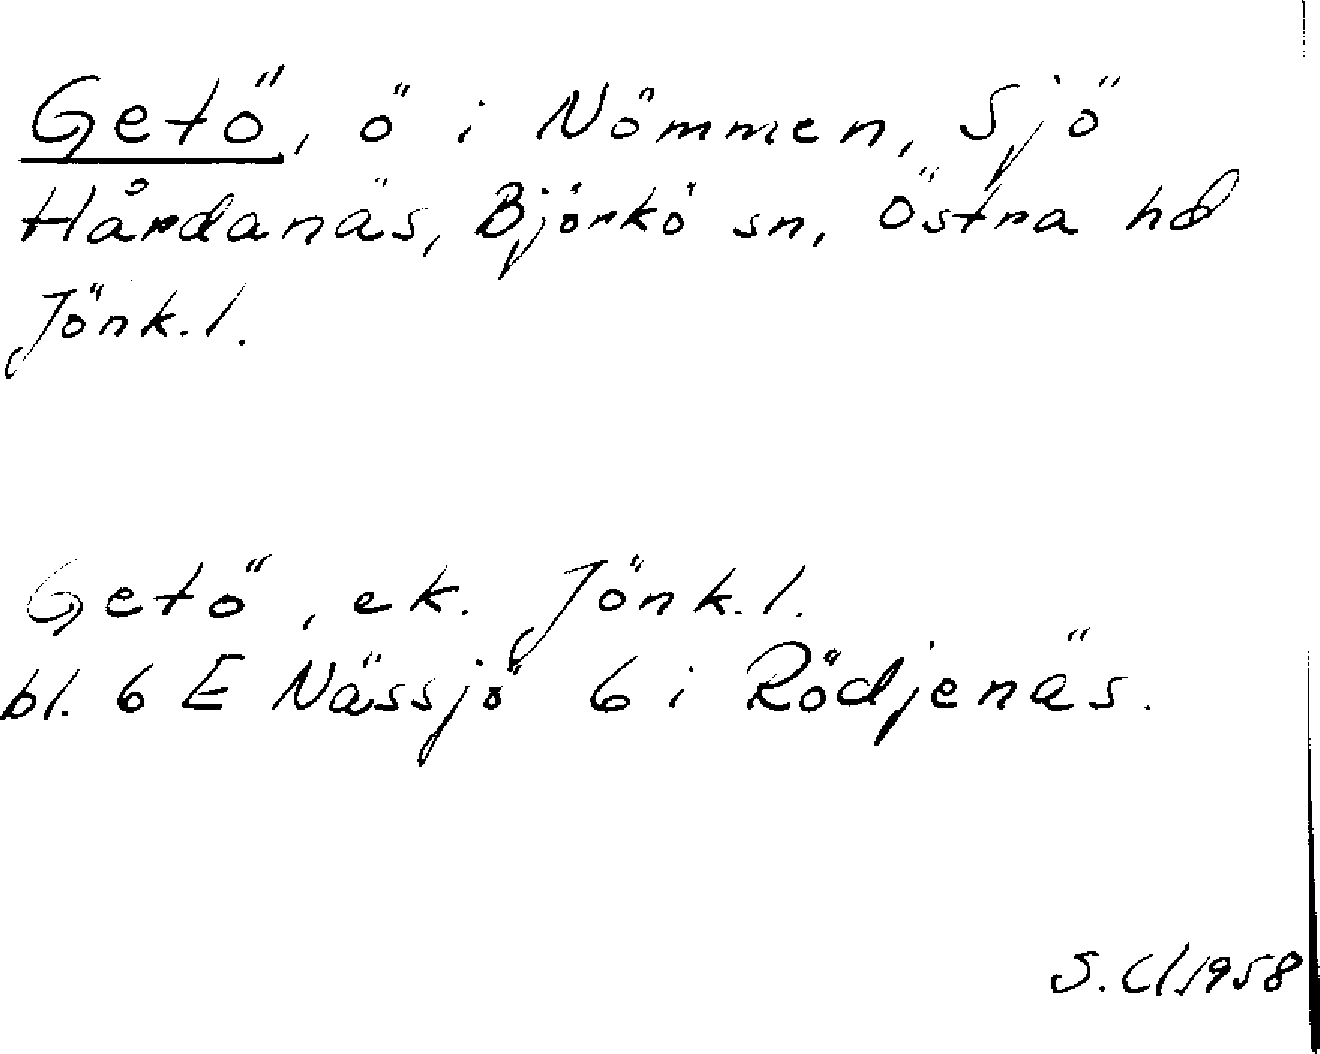 Getö, ö i Nömmen, Sjö
Hårdanäs, Björkö sn, Östra hd
Jönk.l.
Getö, ek. Jönk.l.
bl. 6 E Nässjö 6 i Rödjenäs.
S. Cl 1958